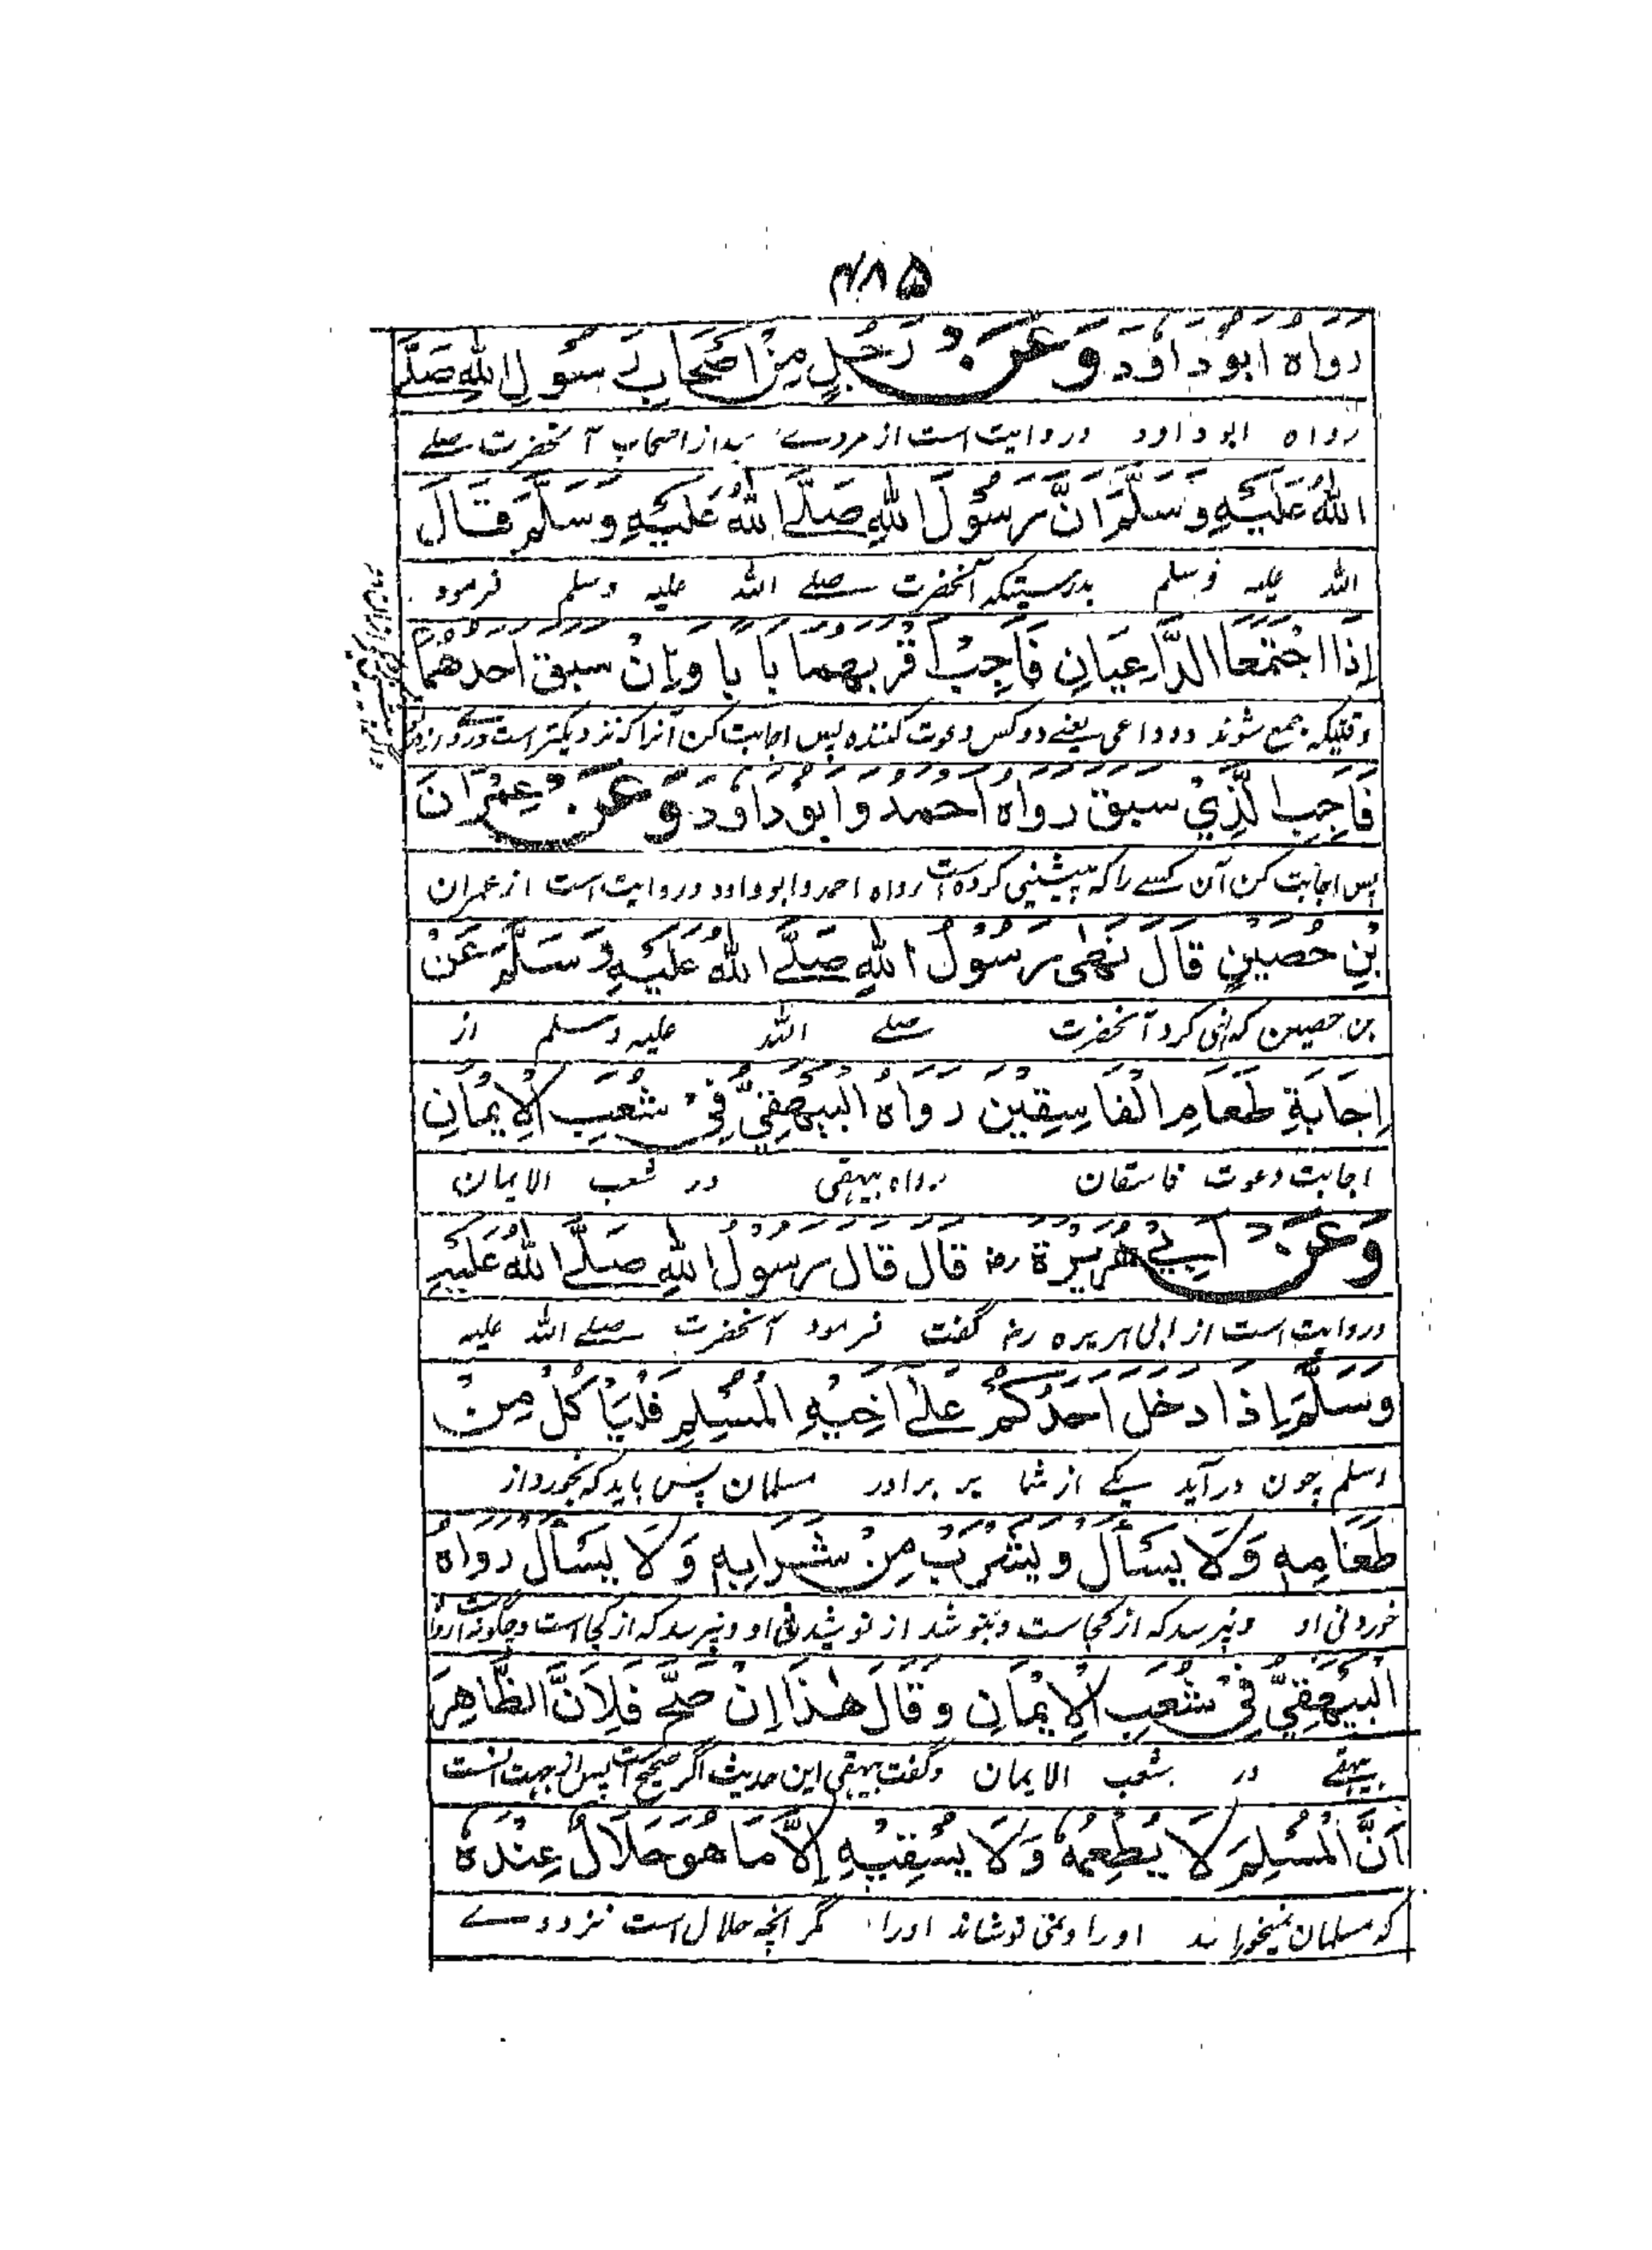 ۴۸۵
رَوَاهُ ابُوْدَاوٗدَ وَعَنْ رَجُلٍ مِنْ اَصْحَابِ رَسُوْلِ اللّٰهِ صَلَّے
رواه ابو داود وروایت است از مردے از اصحاب آنحضرت صلے
اللّٰهُ عَلَيْهِ وَسَلَّمَ اَنَّ رَسُوْلَ اللّٰهِ صَلَّے اللّٰهُ عَلَيْهِ وَسَلَّمَ قَالَ
الله علیه وسلم بدرستیکه آنحضرت صلے الله علیه وسلم فرمود
اِذَا اجْتَمَعَا الدَّاعِيَانِ فَاَجِبْ اَقْرَبَهُمَا بَابًا وَاِنْ سَبَقَ اَحَدُهُمَا
وقتیکه جمع شوند دو داعی یعنے دو کس دعوت کننده پس اجابت کن آنرا که نزدیکتر است
فَاَجِبِ الَّذِيْ سَبَقَ رَوَاهُ اَحْمَدُ وَابُوْدَاوٗدَ وَعَنْ عِمْرَانَ
پس اجابت کن آن کسے را که پیشینی کرده است رواه احمد وابو داود وروایت است از عمران
بْنِ حُصَيْنٍ قَالَ نَهٰى رَسُوْلُ اللّٰهِ صَلَّے اللّٰهُ عَلَيْهِ وَسَلَّمَ عَنْ
بن حصین که نهی کرد آنحضرت صلے الله علیه وسلم از
اِجَابَةِ طَعَامِ الْفَاسِقِيْنَ رَوَاهُ الْبَيْهَقِيُّ فِيْ شُعَبِ الْاِيْمَانِ
اجابت دعوت فاسقان رواه بیهقی در شعب الایمان
وَعَنْ اَبِيْ هُرَيْرَةَ رض قَالَ قَالَ رَسُوْلُ اللّٰهِ صَلَّے اللّٰهُ عَلَيْهِ
وروایت است از ابی هریره رض گفت فرمود آنحضرت صلے الله علیه
وَسَلَّمَ اِذَا دَخَلَ اَحَدُكُمْ عَلٰے اَخِيْهِ الْمُسْلِمِ فَلْيَاْكُلْ مِنْ
وسلم چون درآید یکے از شما بر برادر مسلمان پس باید که بخورد از
طَعَامِهٖ وَلَا يَسْأَلْ وَيَشْرَبْ مِنْ شَرَابِهٖ وَلَا يَسْأَلْ رَوَاهُ
خوردنی او ونپرسد که از کجاست وبنوشد از نوشیدنی او ونپرسد که از کجا است وچگونه است رواه
الْبَيْهَقِيُّ فِيْ شُعَبِ الْاِيْمَانِ وَقَالَ هٰذَا اِنْ صَحَّ فَلِاَنَّ الظَّاهِرَ
بیهقے در شعب الایمان وگفت بیهقی این حدیث اگر صحیح است پس از جهت آنست
اَنَّ الْمُسْلِمَ لَا يُطْعِمُهٗ وَلَا يَسْقِيْهِ اِلَّا مَا هُوَ حَلَالٌ عِنْدَهٗ
که مسلمان نمیخوراند او را ونمی نوشاند او را مگر آنچه حلال است نزد وے